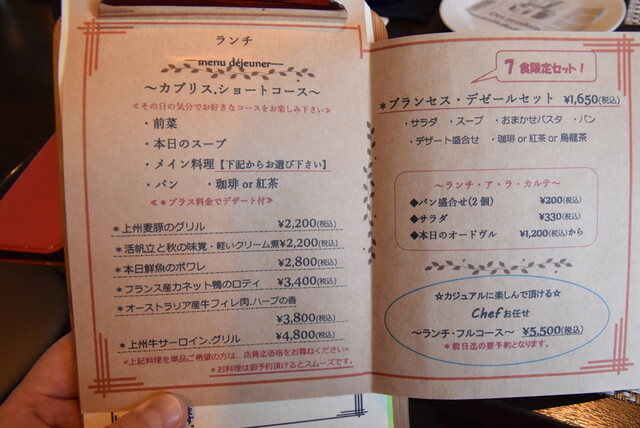 ランチ
menu déjeuner
～カプリス,ショートコース～
≪その日の気分でお好きなコースをお楽しみ下さい≫
・前菜
・本日のスープ
・メイン料理【下記からお選び下さい】
・パン ・珈琲 or 紅茶
≪＊プラス料金でデザート付≫
＊上州麦豚のグリル ¥2,200(税込)
＊活帆立と秋の味覚・軽いクリーム煮¥2,200(税込)
＊本日鮮魚のポワレ ¥2,800(税込)
＊フランス産カネット鴨のロティ ¥3,400(税込)
＊オーストラリア産牛フィレ肉,ハーブの香
¥3,800(税込)
＊上州牛サーロイン,グリル ¥4,800(税込)
≪上記料理を単品ご希望の方は、店員迄価格をお尋ねください≫
＊お料理は御予約頂けるとスムーズです。
7食限定セット!
＊プランセス・デゼールセット ¥1,650(税込)
・サラダ ・スープ ・おまかせパスタ ・パン
・デザート盛合せ ・珈琲 or 紅茶 or 烏龍茶
～ランチ・ア・ラ・カルテ～
◆パン盛合せ(2個) ¥200(税込)
◆サラダ ¥330(税込)
◆本日のオードヴル ¥1,200(税込)から
☆カジュアルに楽しんで頂ける☆
Chefお任せ
～ランチ・フルコース～ ¥5,500(税込)
＊前日迄の要予約となります。